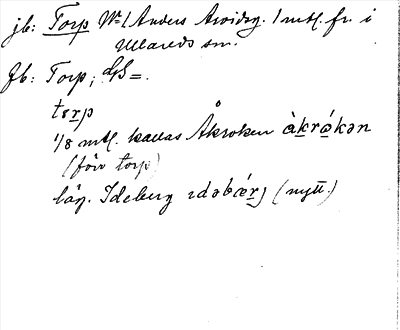 jb: Torp No 1 Anders Arvidsg. 1 mtl. fr. i
Ullareds sn.
Jb: Torp, GS =.
torp
1/8 mtl. kallas Åkroken àkrókən
(förr torp)
läg. Ideberg idəbærj (nytt.)